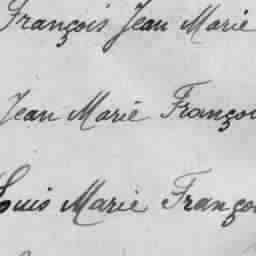 François Jean Marie
Jean Marie Franço
Louis Marie Franço